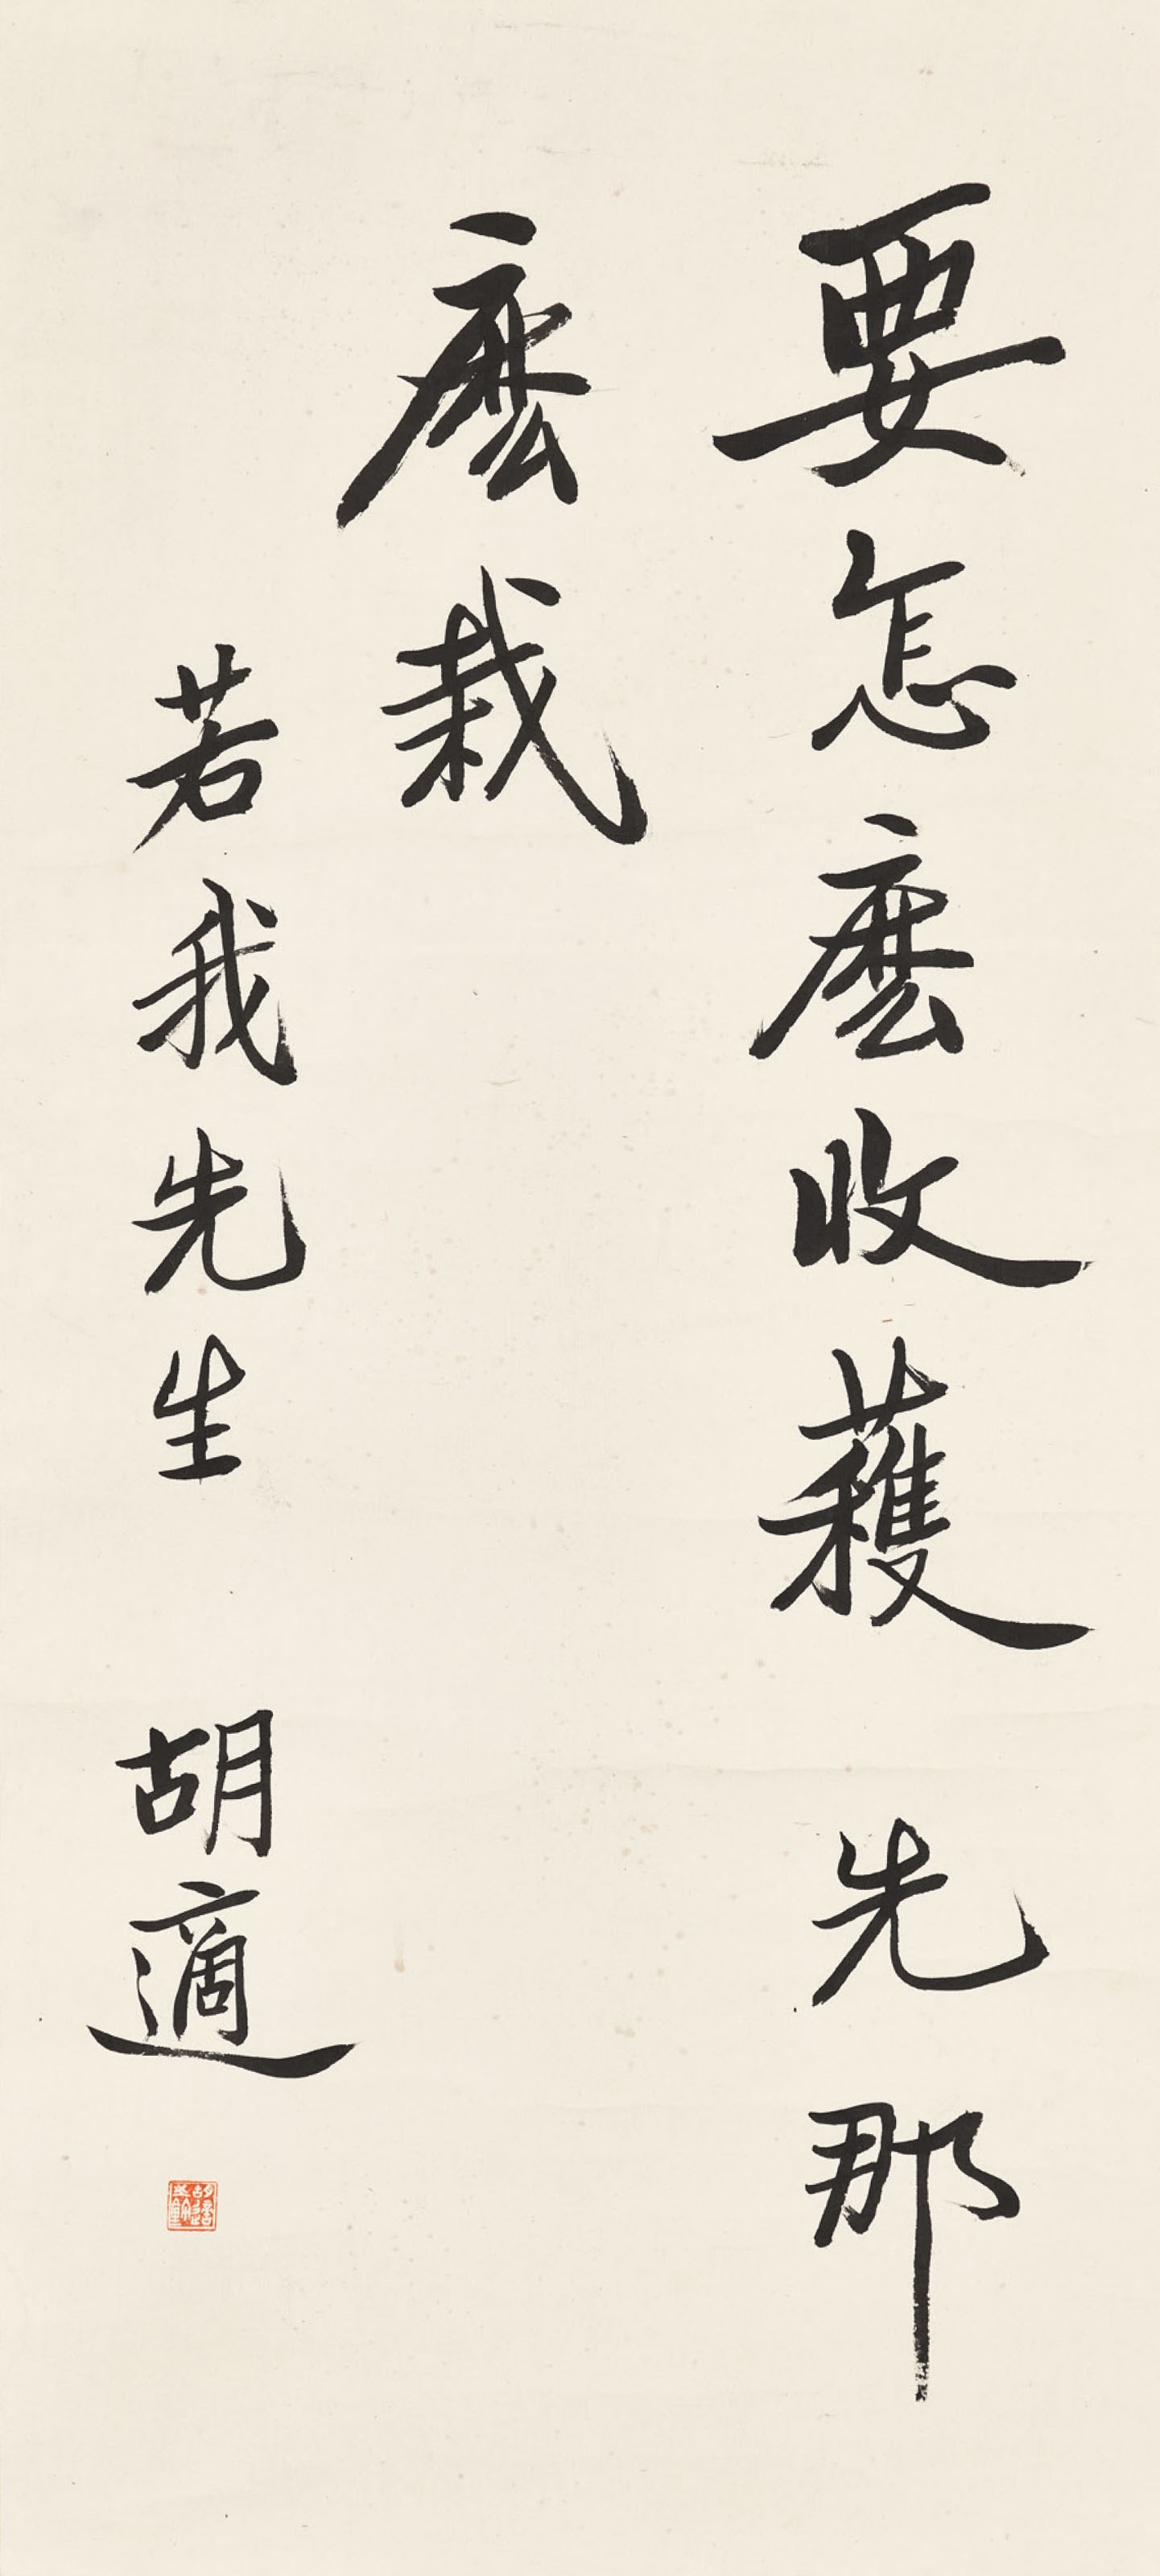 要怎麼收穫 先那
麼栽
若我先生 胡適